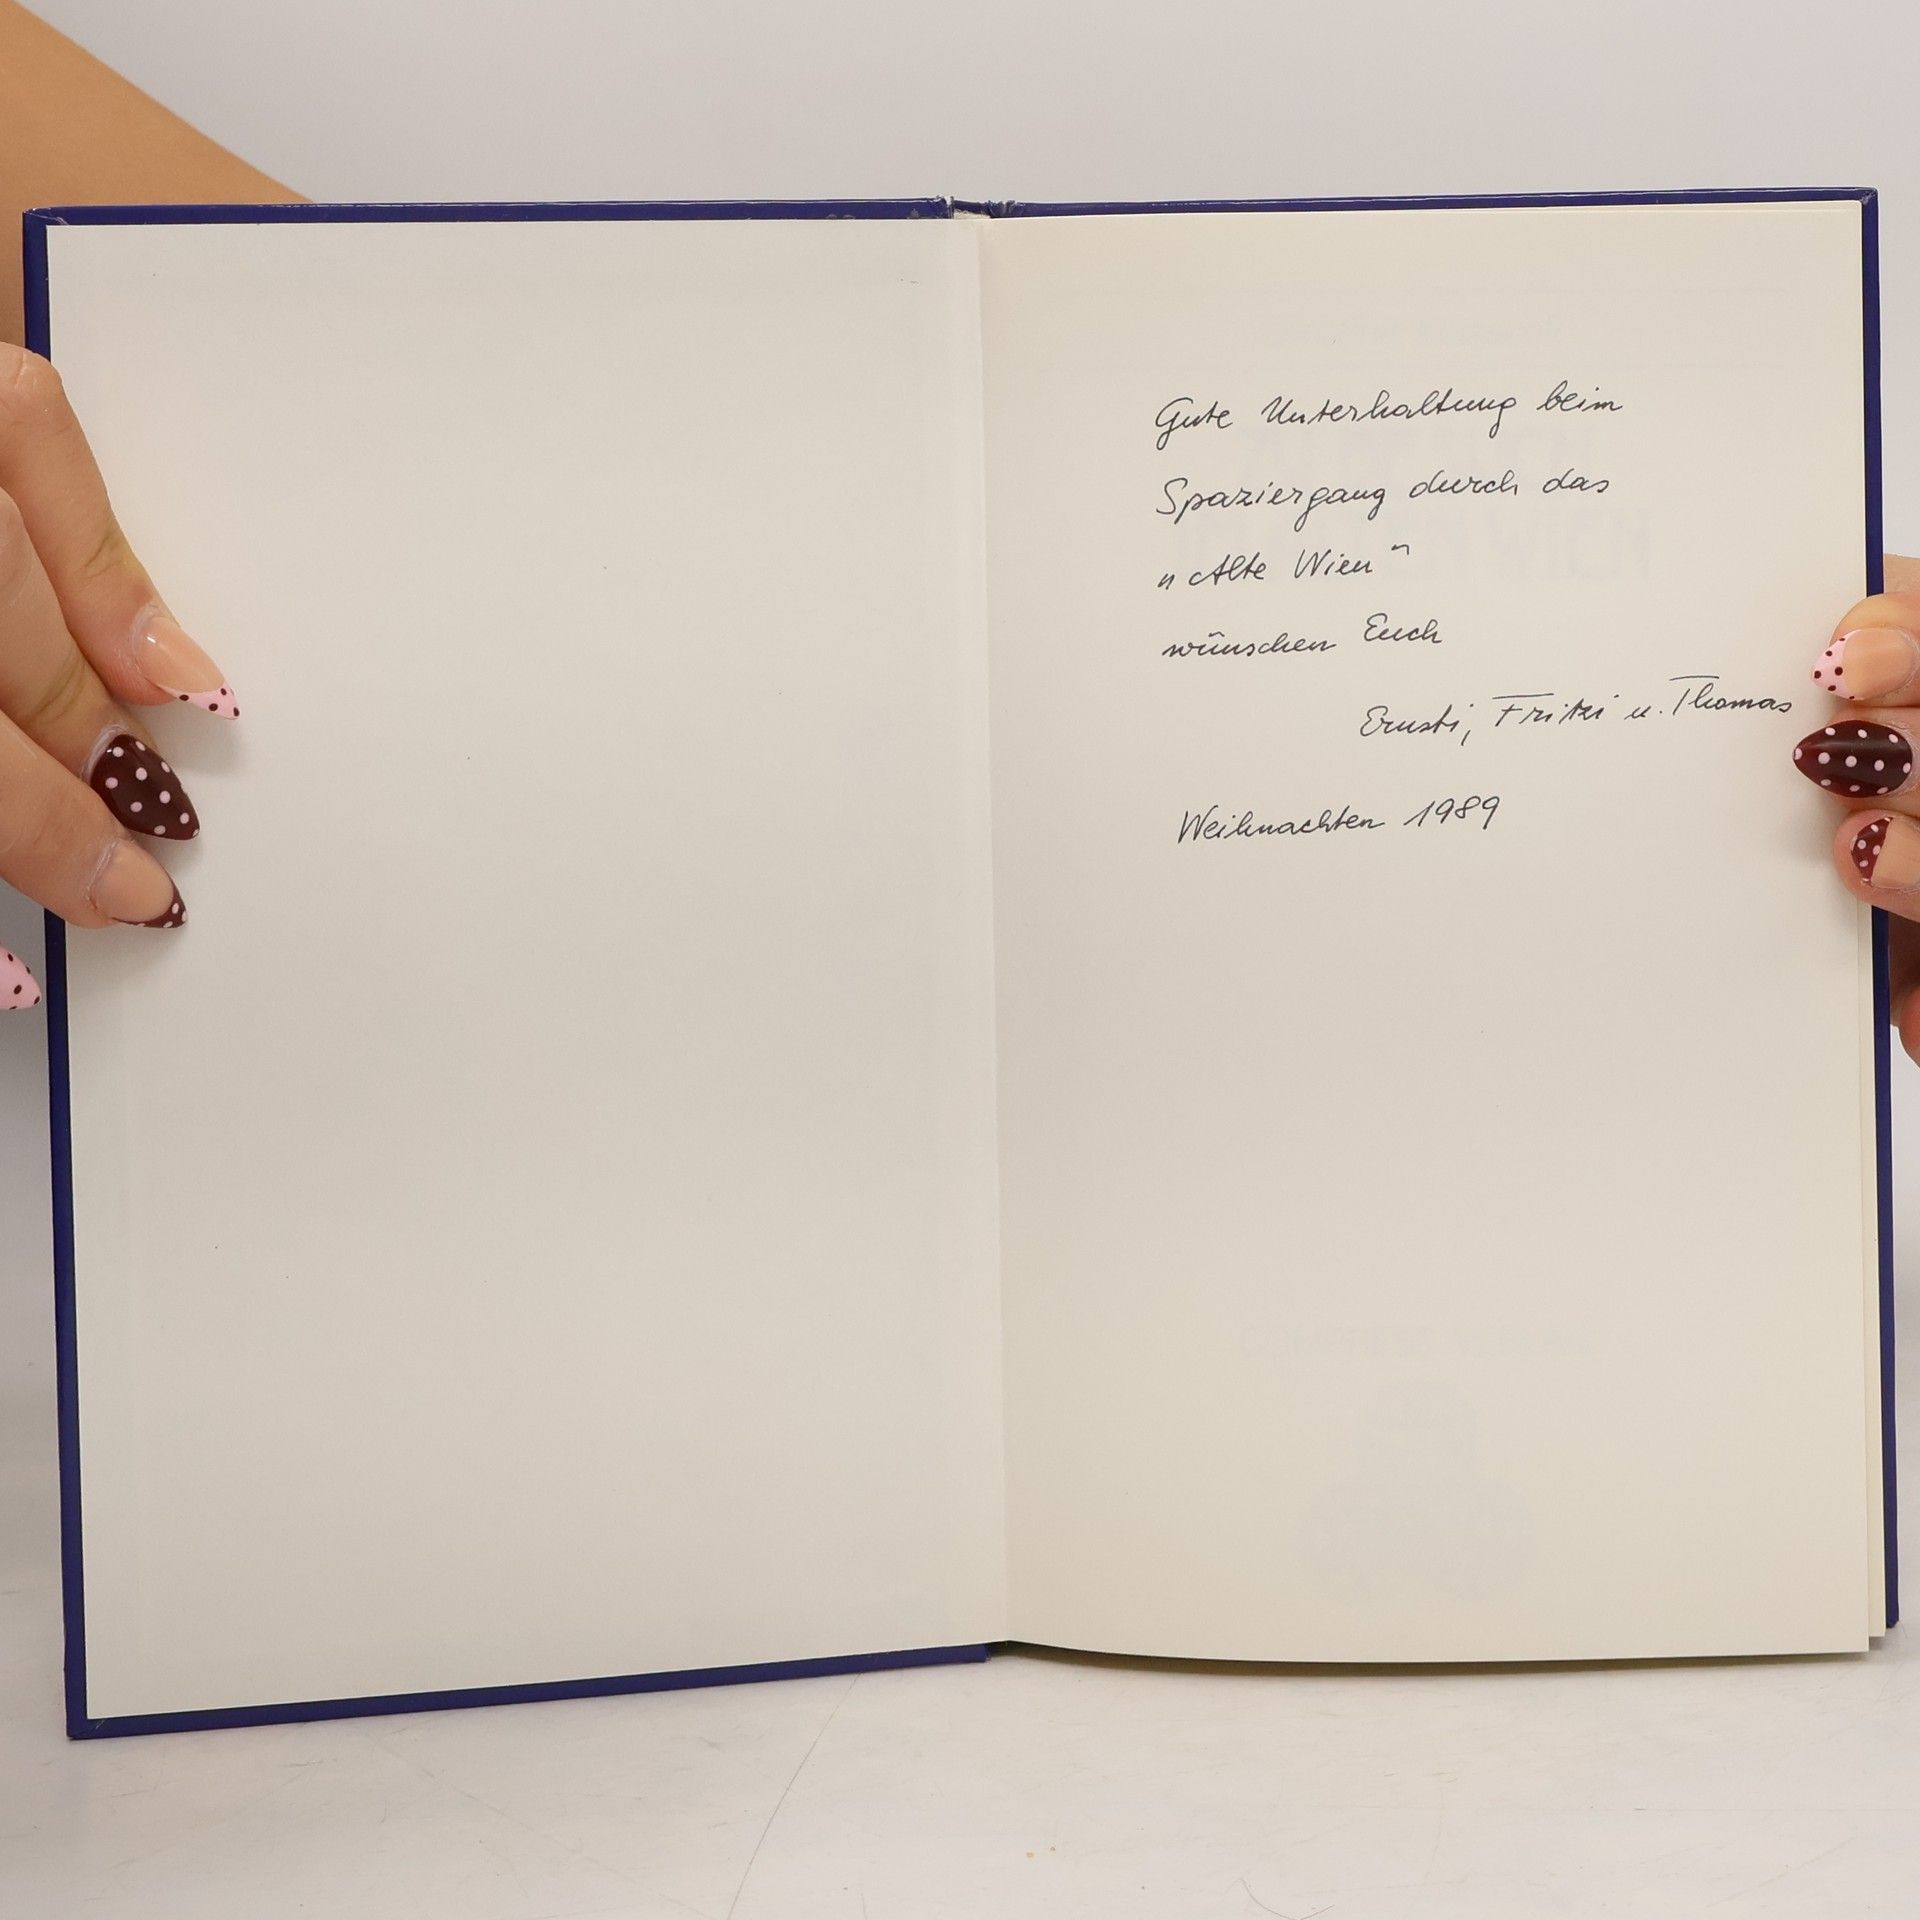 Gute Unterhaltung beim
Spaziergang durch das
„Alte Wien“
wünschen Euch
Ernsti, Fritzi u. Thomas
Weihnachten 1989